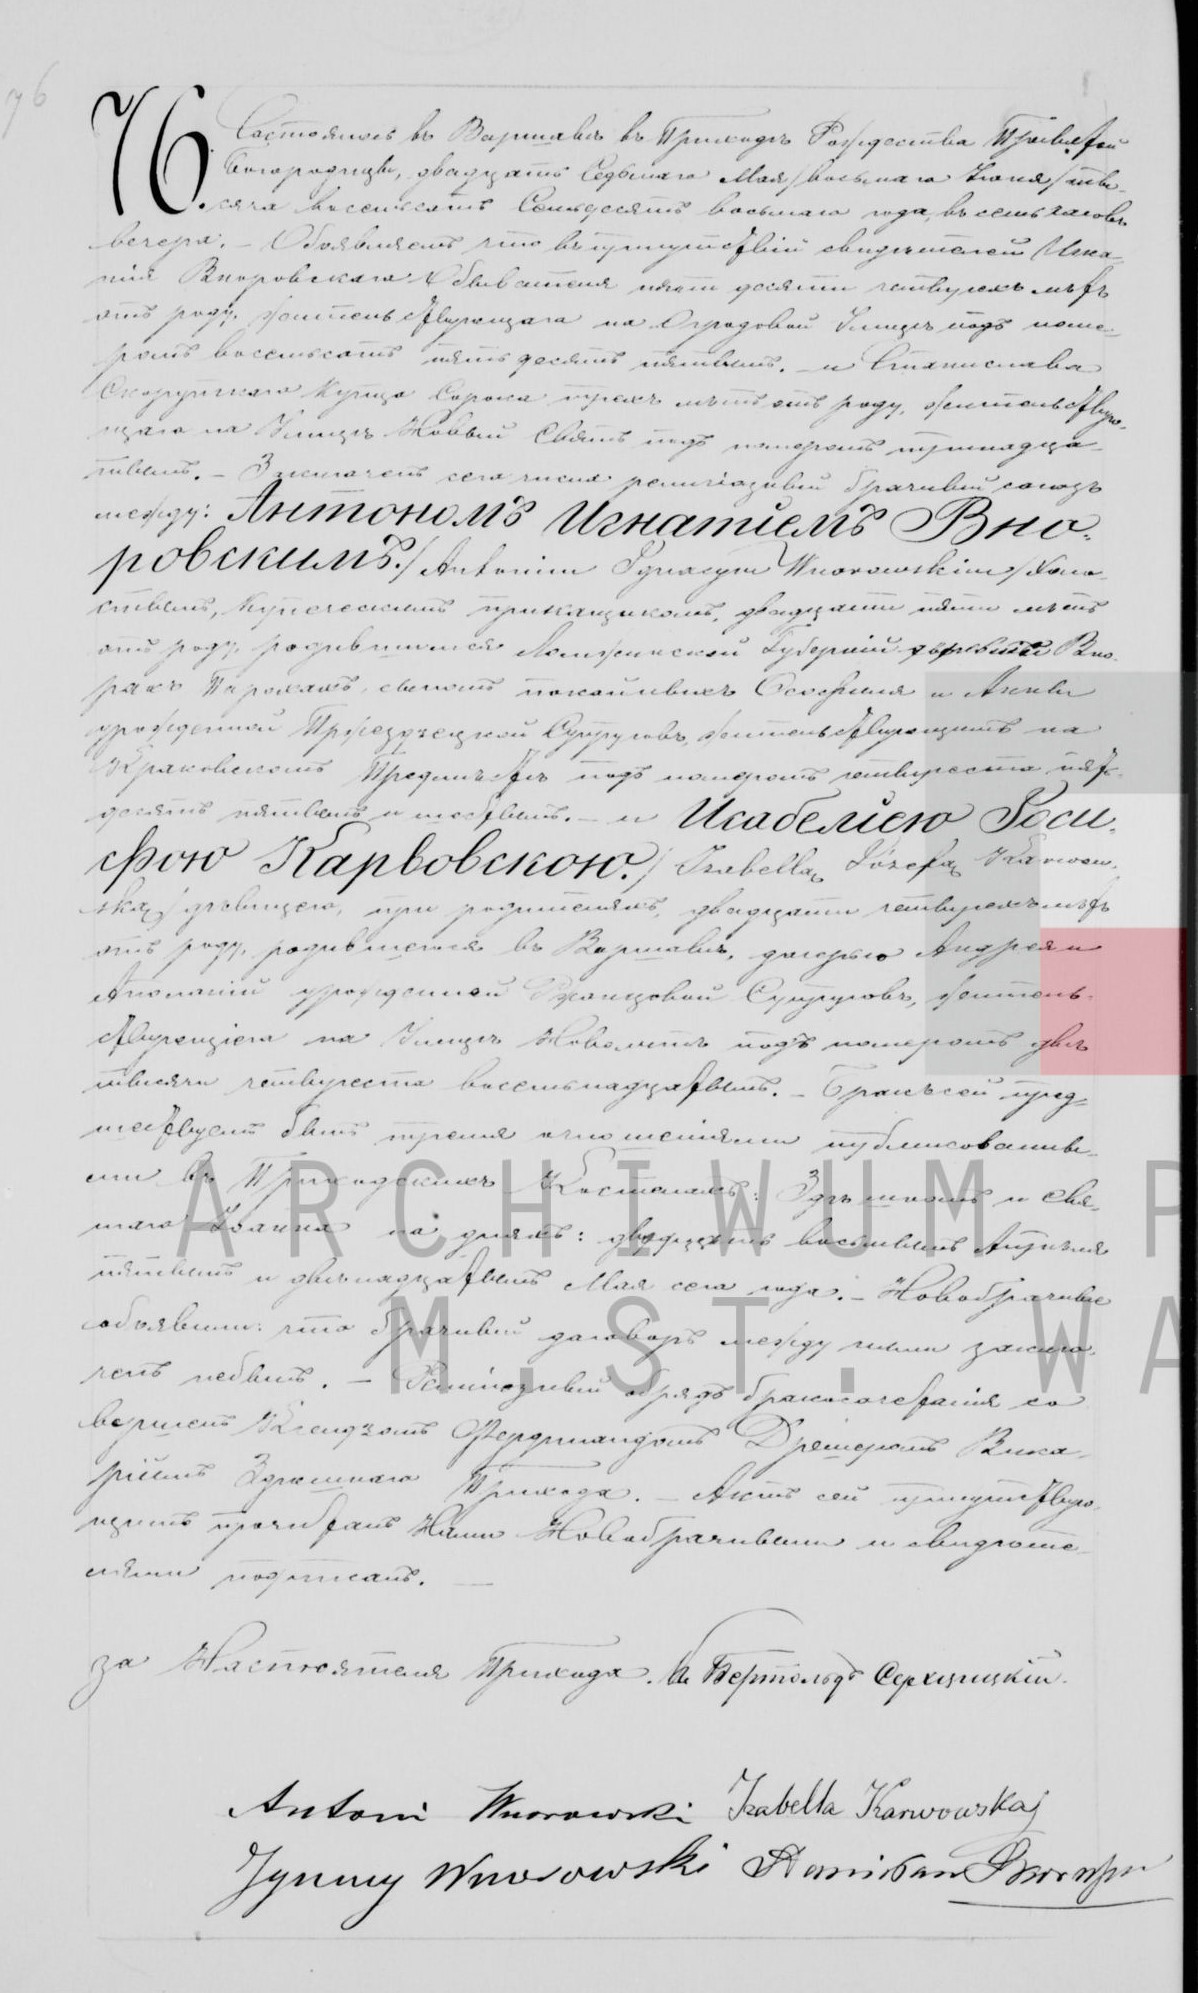 76
76. Состоялось въ Варшавѣ въ Приходѣ Рождества Пресвятой
Богородицы, двадцать Седьмаго Мая /восьмаго Іюня/ тыся-
сяча восемьсотъ Семьдесятъ восьмаго года, въ семь часовъ
вечера. – Объявляемъ что въ присутствіи свидѣтелей Игна-
тія Вноровскаго Обывателя пяти десяти четырехъ лѣтъ
отъ роду, жительствующаго на Огродовой Улицѣ подъ номе-
ромъ восемьсотъ пятьдесятъ пятымъ. – и Станислава
Скорупскаго Купца Сорока трехъ лѣтъ отъ роду, жительствую-
щаго на Улицѣ Новый Святъ подъ номеромъ тринадца-
тымъ. – Заключенъ сего числа религіозный брачный союзъ
между: Антономъ Игнатіемъ Вно-
ровскимъ. /Antonim Ignacym Wnorowskim/ Холо-
стымъ, Купеческимъ прикащикомъ, двадцати пяти лѣтъ
отъ роду, родившимся Ломжинской Губерніи деревнѣ Вно-
рахъ сыномъ покойныхъ и Анны
урожденной Супруговъ, жительствующимъ на
Краковскомъ Предмѣстьѣ подъ номеромъ четыреста пять-
десятъ пятымъ и шестымъ. – и Изабеллею Іоси-
фою Карвовскою. / Izabellą Józefą Karwow-
ską/ дѣвицею, при родителяхъ, двадцати четырехъ лѣтъ
отъ роду, родившеюся въ Варшавѣ, дочерью Андрея и
Аполоніи урожденной Супруговъ, житель-
ствующею на Улицѣ Новолипѣ подъ номеромъ двѣ
тысячи четыреста восемьнадцатымъ. – Бракъ сей пред-
шествуемъ былъ тремя оглашеніями публикованны-
ми въ Приходскихъ Костелахъ: Здѣшномъ и Свя-
таго Іоанна на дняхъ: двадцать восьмымъ Апрѣля
пятымъ и двѣнадцатымъ Мая сего года. – Новобрачные
объявили: что брачный договоръ между ними заклю-
ченъ небылъ. – Религіозный обрядъ бракосочетанія со
вершенъ Ксендзомъ Фердинандомъ Дрешеромъ Вика-
ріемъ Здѣшняго Прихода. – Актъ сей присутствую-
щимъ прочитанъ Нами Новобрачными и свидѣте-
лями подписанъ. —
за Настоятеля Прихода. Кс Бертольдъ
Antoni Wnorowski Izabella Karwowska
Ignacy Wnorowski Stanisław
ARCHIWUM P
M. ST. WA